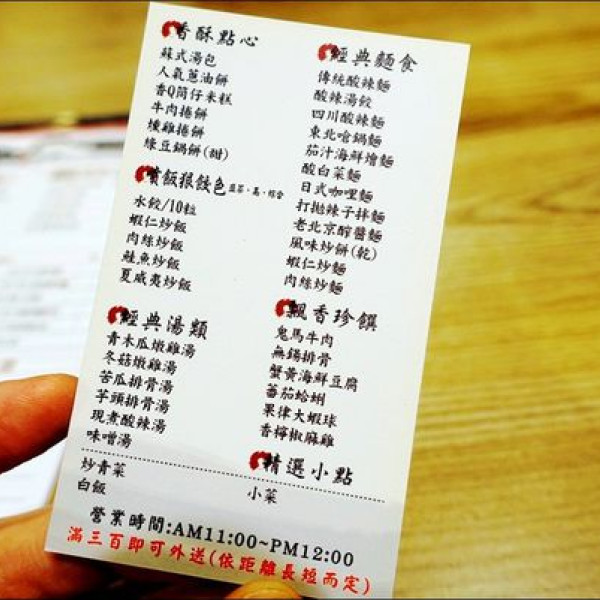 香酥點心
蘇式湯包
人氣蔥油餅
香Q筒仔米糕
牛肉捲餅
燻雞捲餅
綠豆鍋餅(甜)
噴飯狠餃色
水餃/10粒
蝦仁炒飯
肉絲炒飯
鮭魚炒飯
夏威夷炒飯
經典湯類
青木瓜燉雞湯
冬菇燉雞湯
苦瓜排骨湯
芋頭排骨湯
現煮酸辣湯
味噌湯
經典麵食
傳統酸辣麵
酸辣湯餃
四川酸辣麵
東北嗆鍋麵
茄汁海鮮燴麵
酸白菜麵
日式咖哩麵
打拋辣子拌麵
老北京醡醬麵
風味炒餅(乾)
蝦仁炒麵
肉絲炒麵
飄香珍饌
鬼馬牛肉
無錫排骨
蟹黃海鮮豆腐
蕃茄蛤蜊
果律大蝦球
香檸椒麻雞
精選小點
炒青菜
白飯
小菜
營業時間:AM11:00~PM12:00
滿三百即可外送(依距離長短而定)